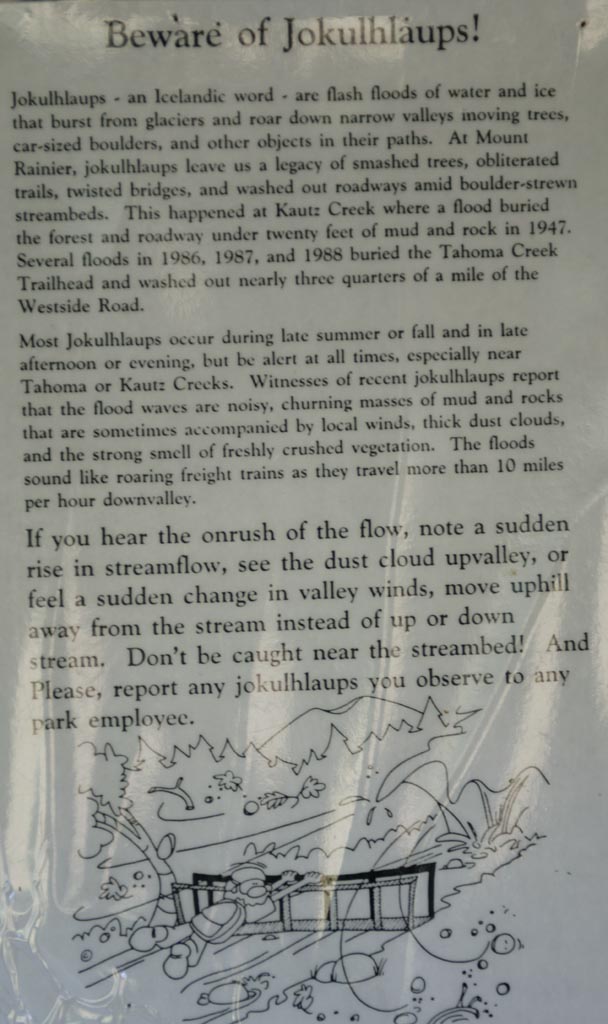 Beware of Jokulhlaups!
Jokulhlaups - an Icelandic word - are flash floods of water and ice
that burst from glaciers and roar down narrow valleys moving trees,
car-sized boulders, and other objects in their paths. At Mount
Rainier, jokulhlaups leave us a legacy of smashed trees, obliterated
trails, twisted bridges, and washed out roadways amid boulder-strewn
streambeds. This happened at Kautz Creek where a flood buried
the forest and roadway under twenty feet of mud and rock in 1947.
Several floods in 1986, 1987, and 1988 buried the Tahoma Creek
Trailhead and washed out nearly three quarters of a mile of the
Westside Road.
Most Jokulhlaups occur during late summer or fall and in late
afternoon or evening, but be alert at all times, especially near
Tahoma or Kautz Creeks. Witnesses of recent jokulhlaups report
that the flood waves are noisy, churning masses of mud and rocks
that are sometimes accompanied by local winds, thick dust clouds,
and the strong smell of freshly crushed vegetation. The floods
sound like roaring freight trains as they travel more than 10 miles
per hour downvalley.
If you hear the onrush of the flow, note a sudden
rise in streamflow, see the dust cloud upvalley, or
feel a sudden change in valley winds, move uphill
away from the stream instead of up or down
stream. Don't be caught near the streambed! And
Please, report any jokulhlaups you observe to any
park employee.